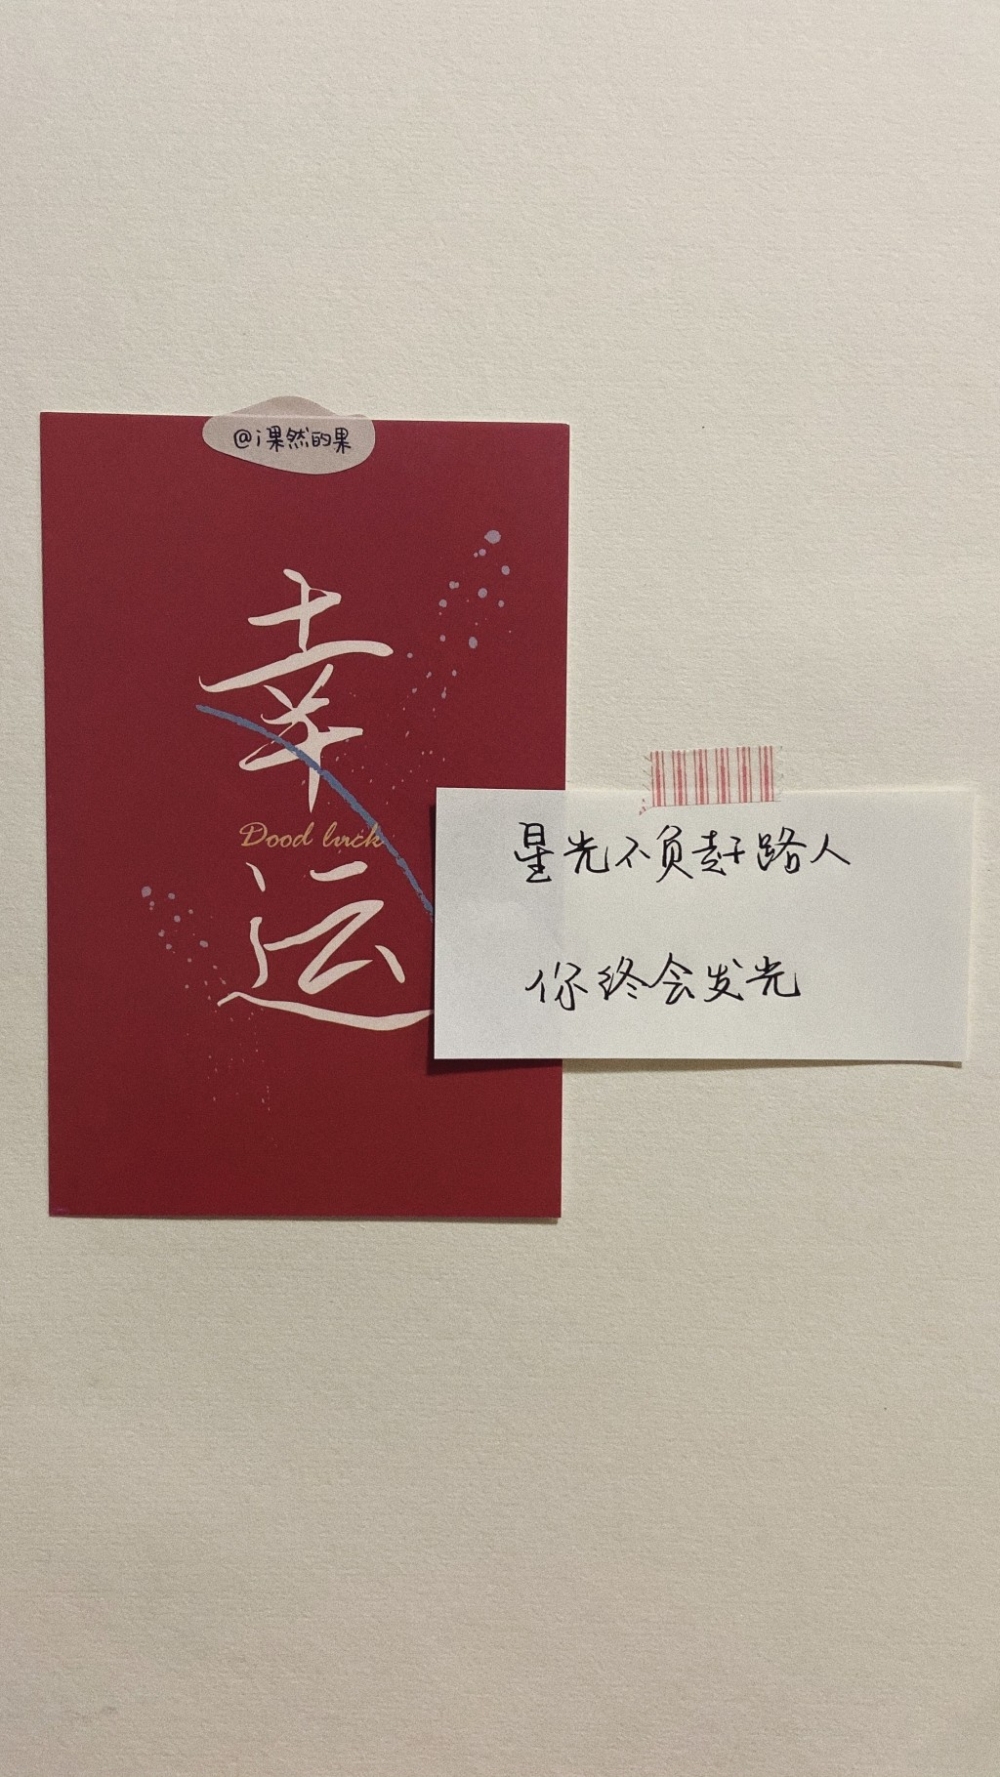 @i果然的果
幸
Dood luck
运
星光不负赶路人
你终会发光